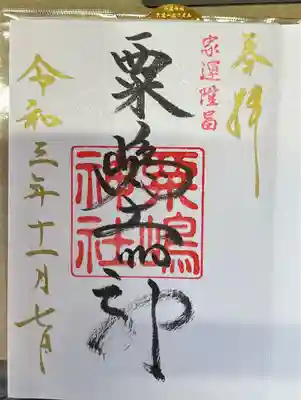 奉拝
家運隆昌
粟嶋大明神
粟嶋神社
令和三年十一月七日